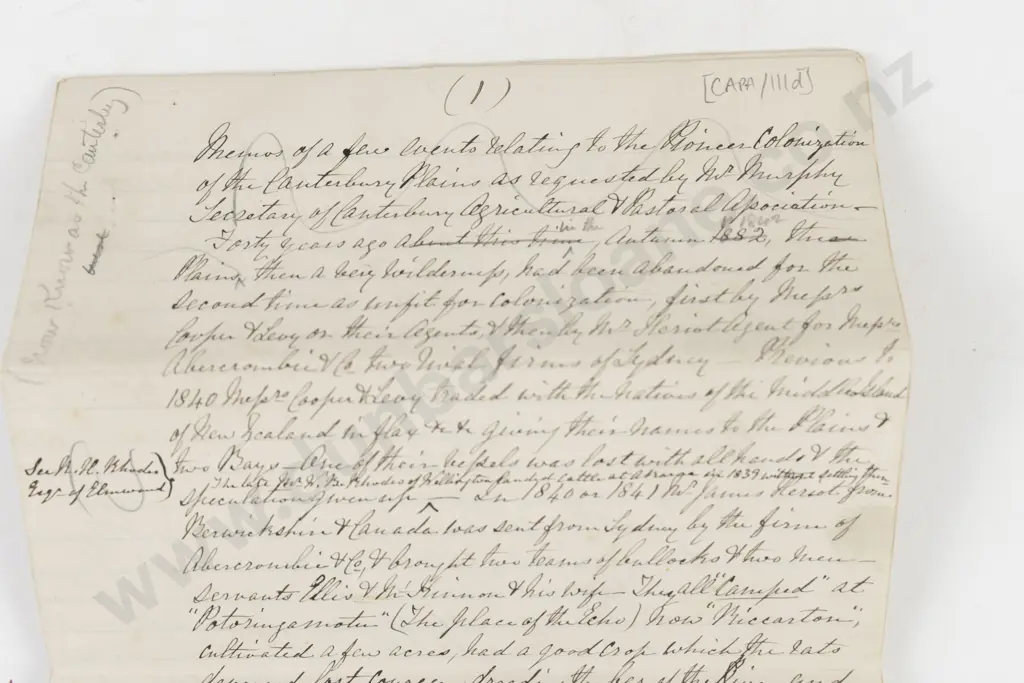 (1)
[CAPA/111d]
Memos of a few events relating to the Pioneer Colonization
of the Canterbury Plains as requested by Mr Murphy
Secretary of Canterbury Agricultural & Pastoral Association –
in the
Forty years ago about this time, Autumn 1882, these
Plains, then a very Wilderness, had been abandoned for the
second time as unfit for colonization, first by Messrs
Cooper & Levy or their Agents, & then by Mr Heriot Agent for Messrs
Abercrombie & Co two rival firms of Sydney – Previous to
1840 Messrs Cooper & Levy traded with the natives of the Middle Island
of New Zealand in flax &c &c giving their names to the Plains &
two Bays – One of their vessels was lost with all hands & the
The late Mr W. B. Rhodes of Wellington landed cattle at Akaroa in 1839 without settling there
speculation given up – In 1840 or 1841 Mr James Heriot, from
Berwickshire & Canada was sent from Sydney by the firm of
Abercrombie & Co, & brought two teams of bullocks & two men –
servants Ellis & McKinnon & his wife – They all "Camped" at
"Potoringamotu" (The place of the Echo) now "Riccarton",
cultivated a few acres, had a good crop which the rats
the bar of the River and
(now known as the Canterbury)
See R. H. Rhodes
Esqr of Elmwood
www.humbanisland.co.nz